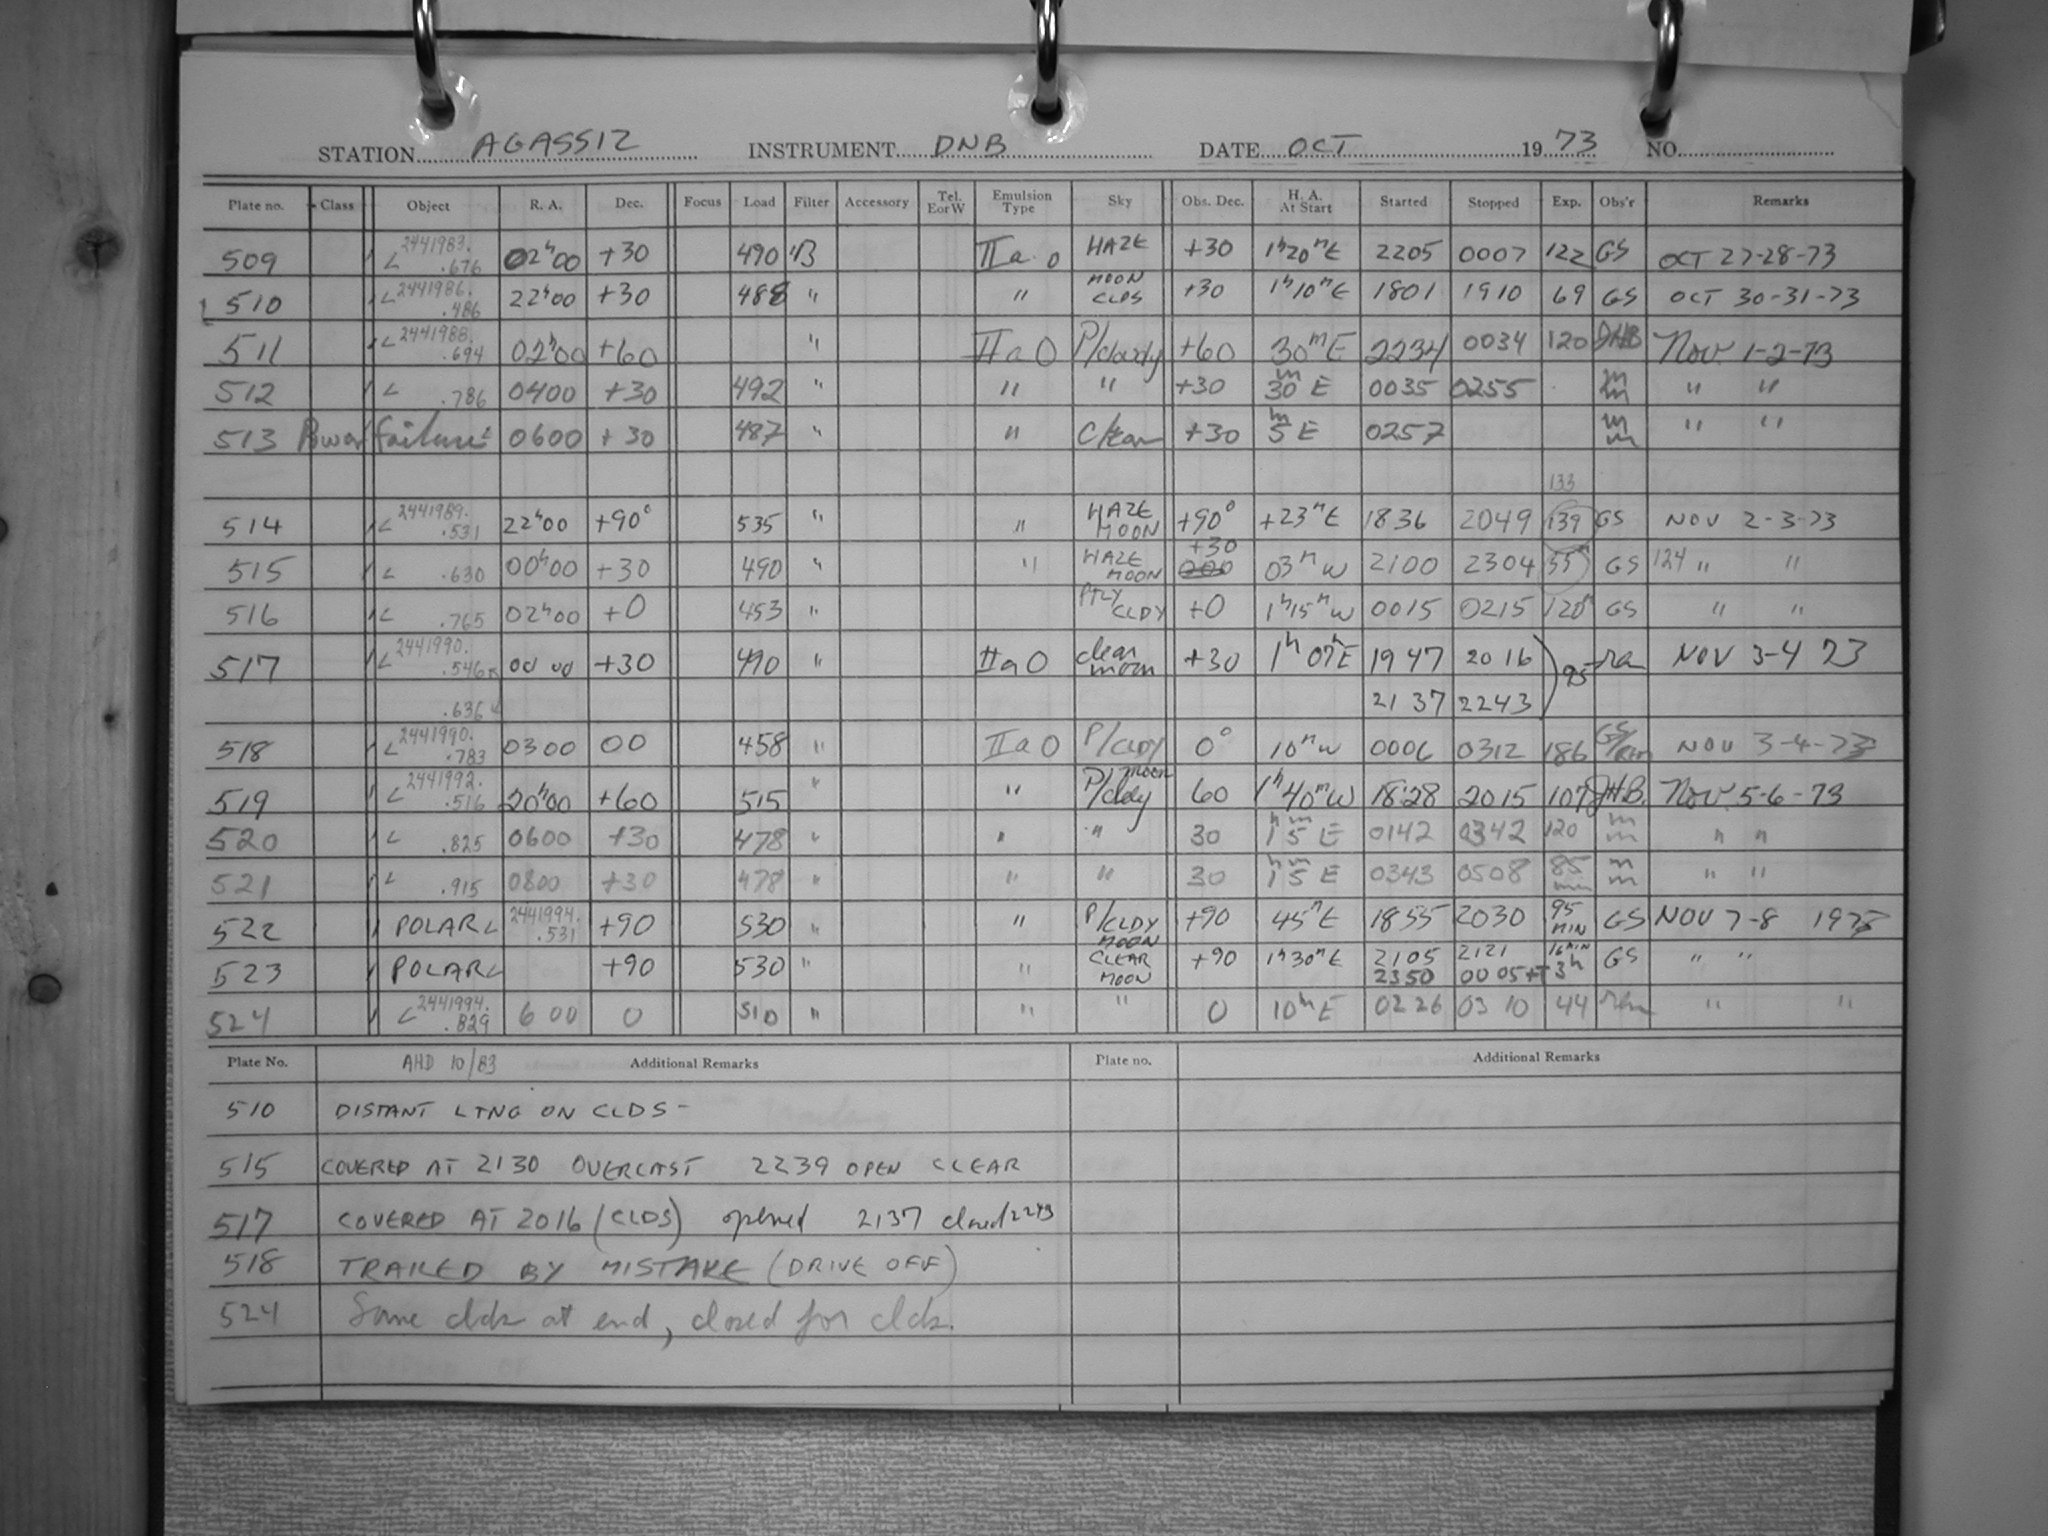 STATION AGASSIZ INSTRUMENT DNB DATE OCT 1973 NO.
Plate no. Class Object R. A. Dec. Focus Load Filter Accessory Tel. E or W Emulsion Type Sky Obs. Dec. H. A. At Start Started Stopped Exp. Obs'r Remarks
509 L 2441983. .676 02h00 +30 490 B IIa O HAZE +30 1h20mE 2205 0007 122 GS OCT 27-28-73
510 L 2441986. .486 22h00 +30 488 " " MOON CLDS +30 1h10mE 1801 1910 69 GS OCT 30-31-73
511 L 2441988. .694 02h00 +60 " IIa O P/cloudy +60 30mE 2234 0034 120 JHB Nov. 1-2-73
512 L .786 0400 +30 492 " " " +30 30m E 0035 0255 " "
513 Power failure 0600 +30 487 " " Clear +30 5m E 0257 " "
133
514 L 2441989. .531 22h00 +90° 535 " " HAZE MOON +90° +23mE 1836 2049 139 GS NOV 2-3-73
515 L .630 00h00 +30 490 " " HAZE MOON +30 03mW 2100 2304 55m GS 124 " "
516 L .765 02h00 +0 453 " PTLY CLDY +0 1h15mW 0015 0215 120m GS " "
517 L 2441990. .546 00 00 +30 490 " IIa O clear moon +30 1h 07mE 1947 2016 95 NOV 3-4 73
.636 2137 2243
518 L 2441990. .783 0300 00 458 " IIa O P/CLDY 0° 10mW 0006 0312 186 GS/ NOV 3-4-73
519 L 2441992. .516 20h00 +60 515 " " P/cldy moon 60 1h40mW 18:28 2015 107 JHB. Nov. 5-6-73
520 L .825 0600 +30 478 " " " 30 1h 5m E 0142 0342 120 " "
521 L .915 0800 +30 478 " " " 30 1h 5m E 0343 0508 85 " "
522 POLAR L 2441994. .531 +90 530 " " P/CLDY MOON +90 45mE 1855 2030 95 MIN GS NOV 7-8 1973
523 POLAR L +90 530 " " CLEAR MOON +90 1h30mE 2105 2121 16MIN GS " "
2350 0005 3h
524 L 2441994. .829 6 00 0 510 " " " 0 10mE 0226 0310 44 " "
Plate No. AHD 10/83 Additional Remarks Plate no. Additional Remarks
510 DISTANT LTNG ON CLDS-
515 COVERED AT 2130 OVERCAST 2239 OPEN CLEAR
517 COVERED AT 2016 (CLDS) opened 2137 closed 2243
518 TRAILED BY MISTAKE (DRIVE OFF)
524 Some clds at end, closed for clds.